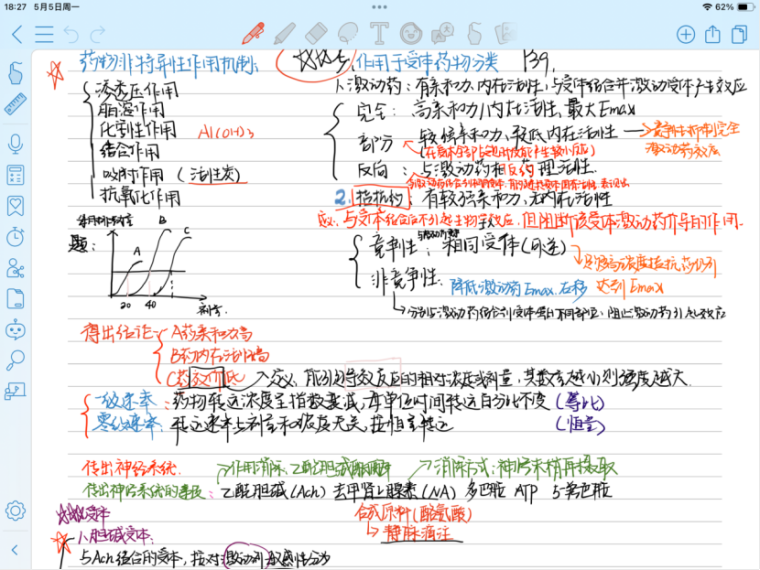 18:27 5月5日周一
62%
药物非特异性作用机制:
渗透压作用
脂溶作用
化学性作用 Al(OH)3
结合作用
吸附作用 (活性炭)
抗氧化作用
作用于受体药物分类 P39.
1.激动药:有亲和力、内在活性,与受体结合并激动受体产生效应
完全:高亲和力、内在活性,最大Emax
部分 较低亲和力,较低内在活性
激动药效应
反向:与激动药相反药理活性.
2.拮抗药:有较强亲和力,无内在活性
定义:与受体结合后不引起生物学效应,但阻断该受体激动药介导的作用.
竞争性:相同受体(可逆)
达到Emax
非竞争性: 降低激动药Emax.右移
题:
A B C
20 40
剂量
得出结论:A药亲和力高
B药内在活性高
C药效价低 定义:能引起等效反应的相对浓度或剂量,其数字越小则强度越大.
一级速率:药物转运浓度呈指数衰减,每单位时间转运百分比不变 (等比)
零级速率:转运速率与剂量和浓度无关,按恒量转运 (恒量)
传出神经系统. 作用消除:乙酰胆碱酯酶 消除方式:神经末梢再摄取
传出神经系统的递质:乙酰胆碱(Ach) 去甲肾上腺素(NA) 多巴胺 ATP 5-羟色胺
合成原料(酪氨酸)
静脉滴注
1.胆碱受体:
与Ach结合的受体,按对激动剂敏感性分为